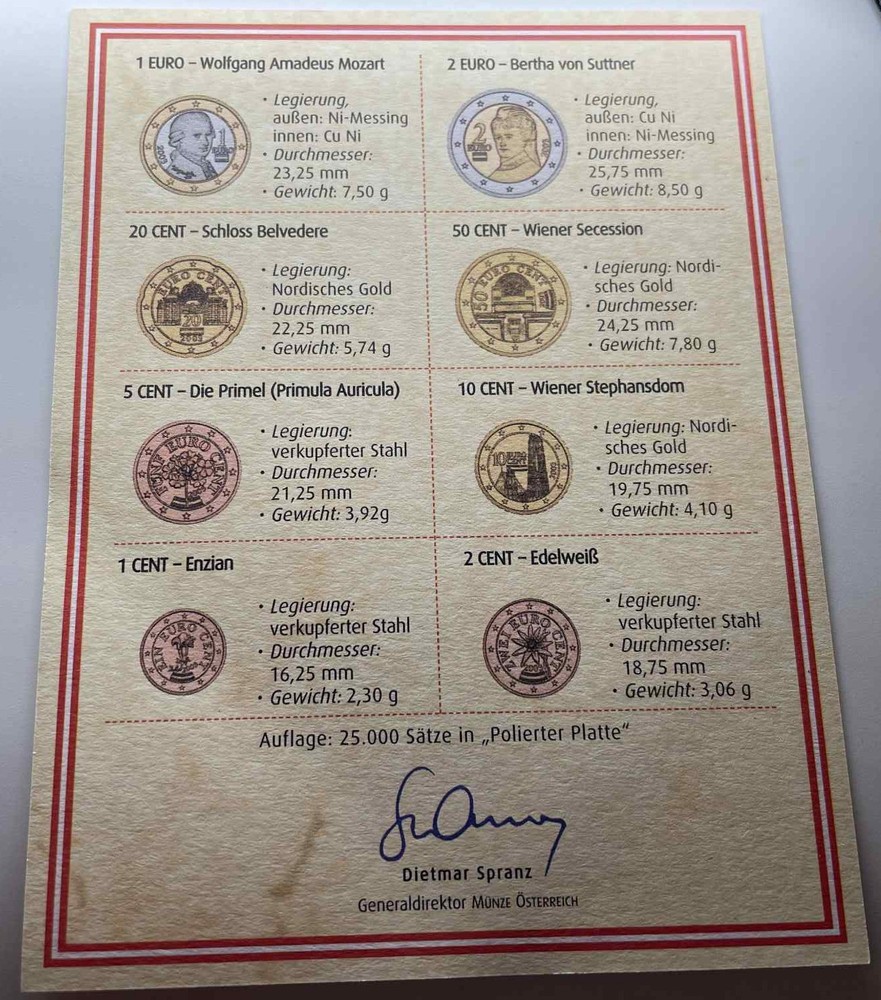 1 EURO – Wolfgang Amadeus Mozart
• Legierung,
außen: Ni-Messing
innen: Cu Ni
• Durchmesser:
23,25 mm
• Gewicht: 7,50 g
1
EURO
2002
2 EURO – Bertha von Suttner
• Legierung,
außen: Cu Ni
innen: Ni-Messing
• Durchmesser:
25,75 mm
• Gewicht: 8,50 g
2
EURO
2002
20 CENT – Schloss Belvedere
• Legierung:
Nordisches Gold
• Durchmesser:
22,25 mm
• Gewicht: 5,74 g
EURO CENT
20
2002
50 CENT – Wiener Secession
• Legierung: Nordi-
sches Gold
• Durchmesser:
24,25 mm
• Gewicht: 7,80 g
50 EURO CENT
5 CENT – Die Primel (Primula Auricula)
• Legierung:
verkupferter Stahl
• Durchmesser:
21,25 mm
• Gewicht: 3,92g
FÜNF EURO CENT
10 CENT – Wiener Stephansdom
• Legierung: Nordi-
sches Gold
• Durchmesser:
19,75 mm
• Gewicht: 4,10 g
10 EURO
CENT
2002
1 CENT – Enzian
• Legierung:
verkupferter Stahl
• Durchmesser:
16,25 mm
• Gewicht: 2,30 g
EIN EURO CENT
2 CENT – Edelweiß
• Legierung:
verkupferter Stahl
• Durchmesser:
18,75 mm
• Gewicht: 3,06 g
ZWEI EURO CENT
2002
Auflage: 25.000 Sätze in „Polierter Platte“
Dietmar Spranz
Generaldirektor MÜNZE ÖSTERREICH